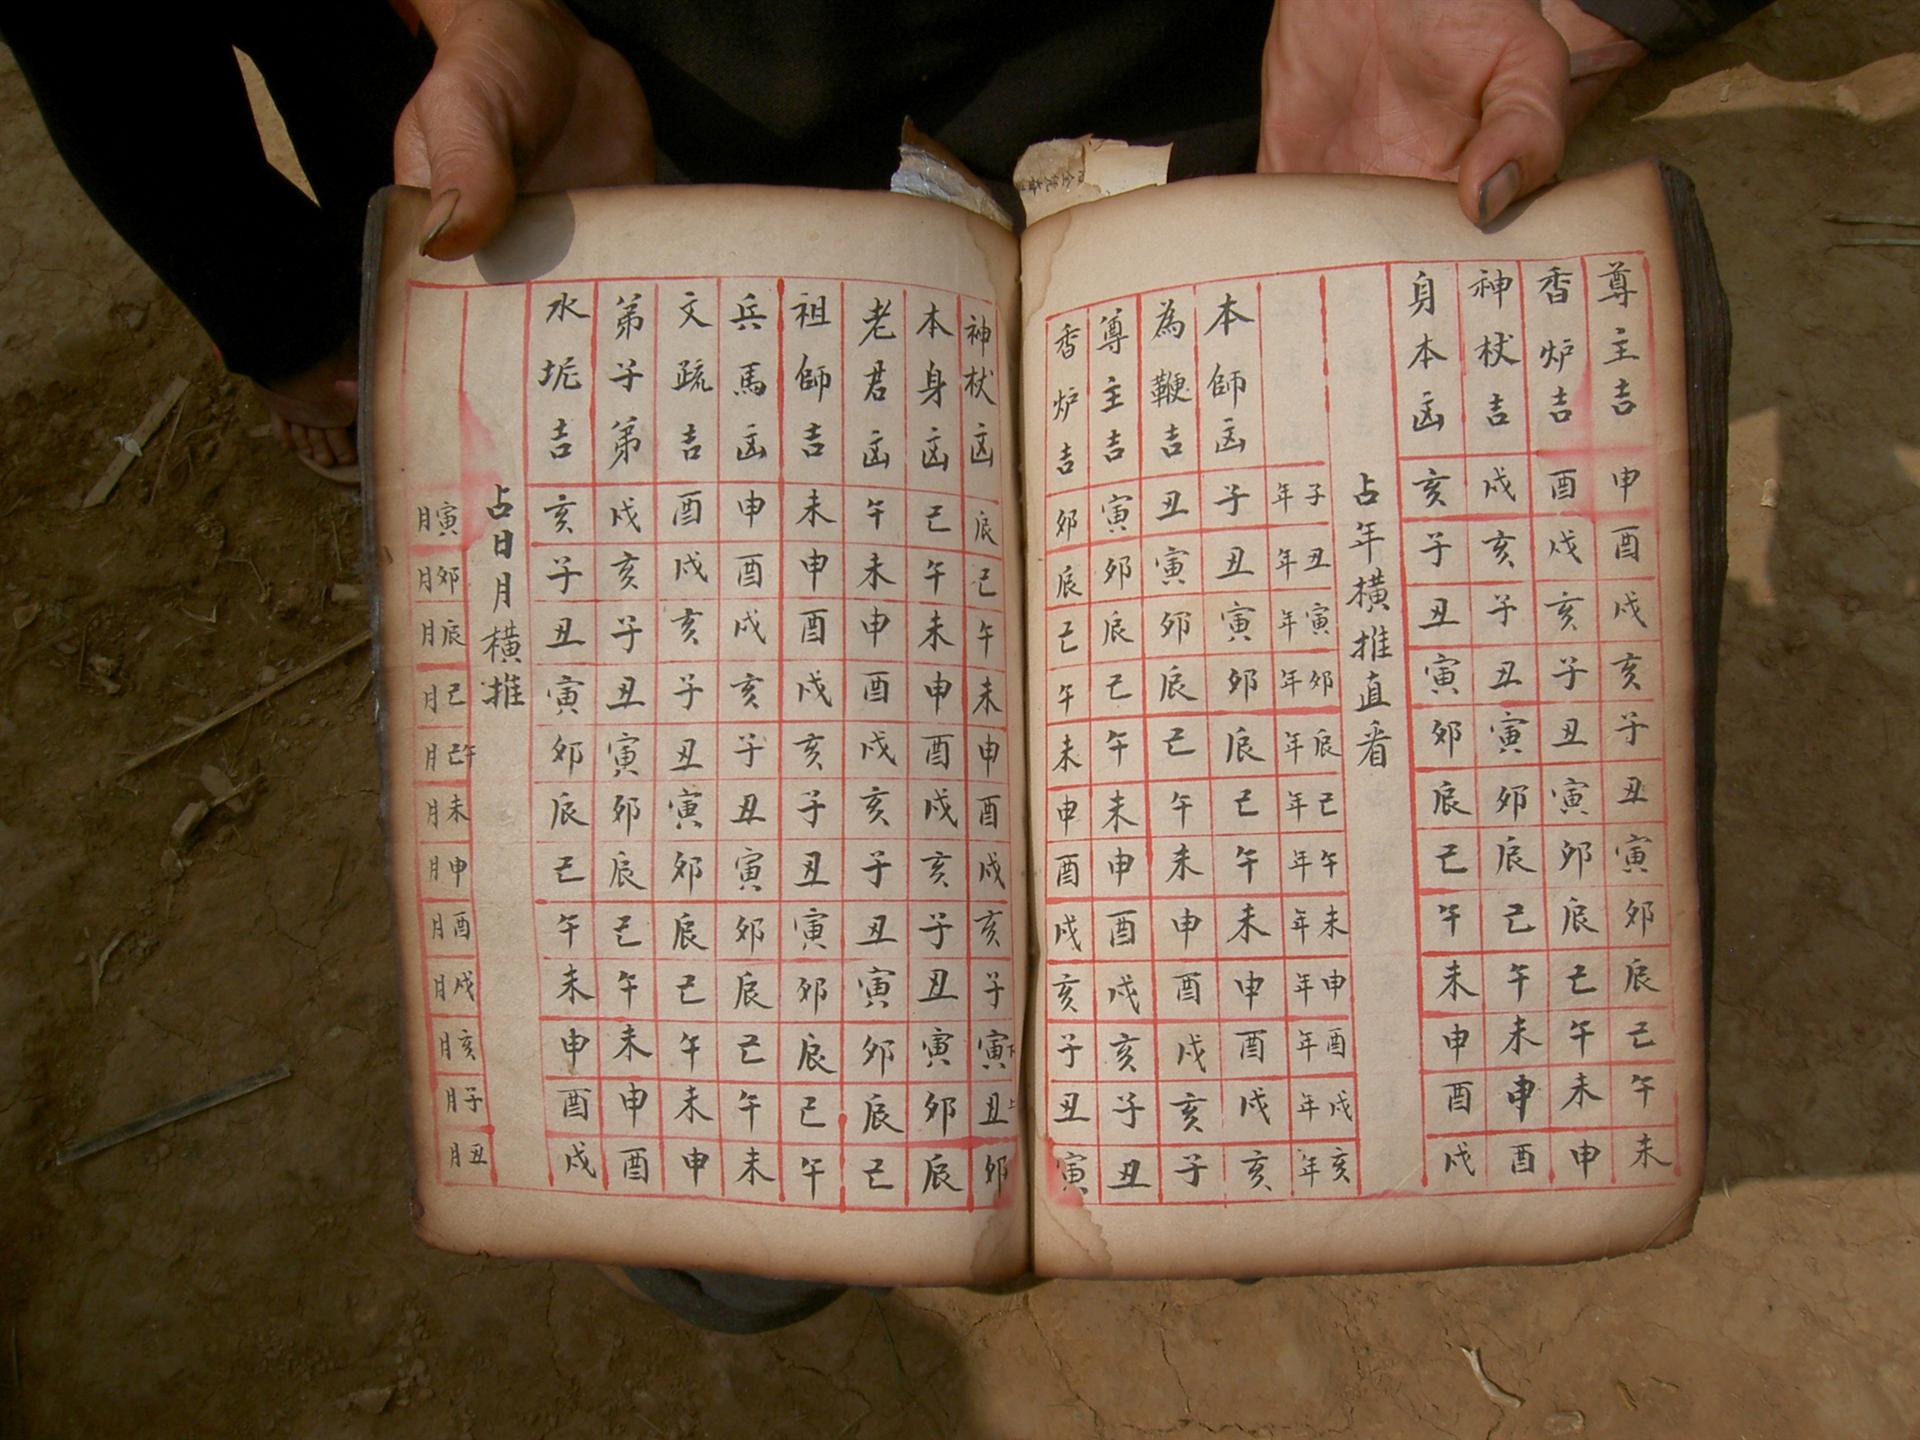 尊主吉申酉戌亥子丑寅卯辰巳午未
香炉吉酉戌亥子丑寅卯辰巳午未申
神杖吉戌亥子丑寅卯辰巳午未申酉
身本凶亥子丑寅卯辰巳午未申酉戌
占年橫推直看
子年丑年寅年卯年辰年巳年午年未年申年酉年戌年亥年
本師凶子丑寅卯辰巳午未申酉戌亥
為鞭吉丑寅卯辰巳午未申酉戌亥子
尊主吉寅卯辰巳午未申酉戌亥子丑
香炉吉卯辰巳午未申酉戌亥子丑寅
神杖凶辰巳午未申酉戌亥子寅丑卯
本身凶巳午未申酉戌亥子丑寅卯辰
老君凶午未申酉戌亥子丑寅卯辰巳
祖師吉未申酉戌亥子丑寅卯辰巳午
兵馬凶申酉戌亥子丑寅卯辰巳午未
文疏吉酉戌亥子丑寅卯辰巳午未申
弟子弟戌亥子丑寅卯辰巳午未申酉
水垢吉亥子丑寅卯辰巳午未申酉戌
占日月橫推
寅月卯月辰月巳月午月未月申月酉月戌月亥月子月丑月